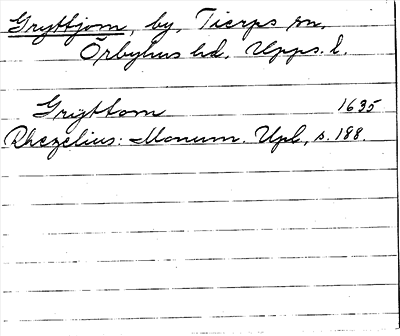 Gryttjom, by, Tierps sn.
Örbyhus hd. Upps. l.
Gryttom 1635
Rhezelius: Monum. Upl., s. 188.